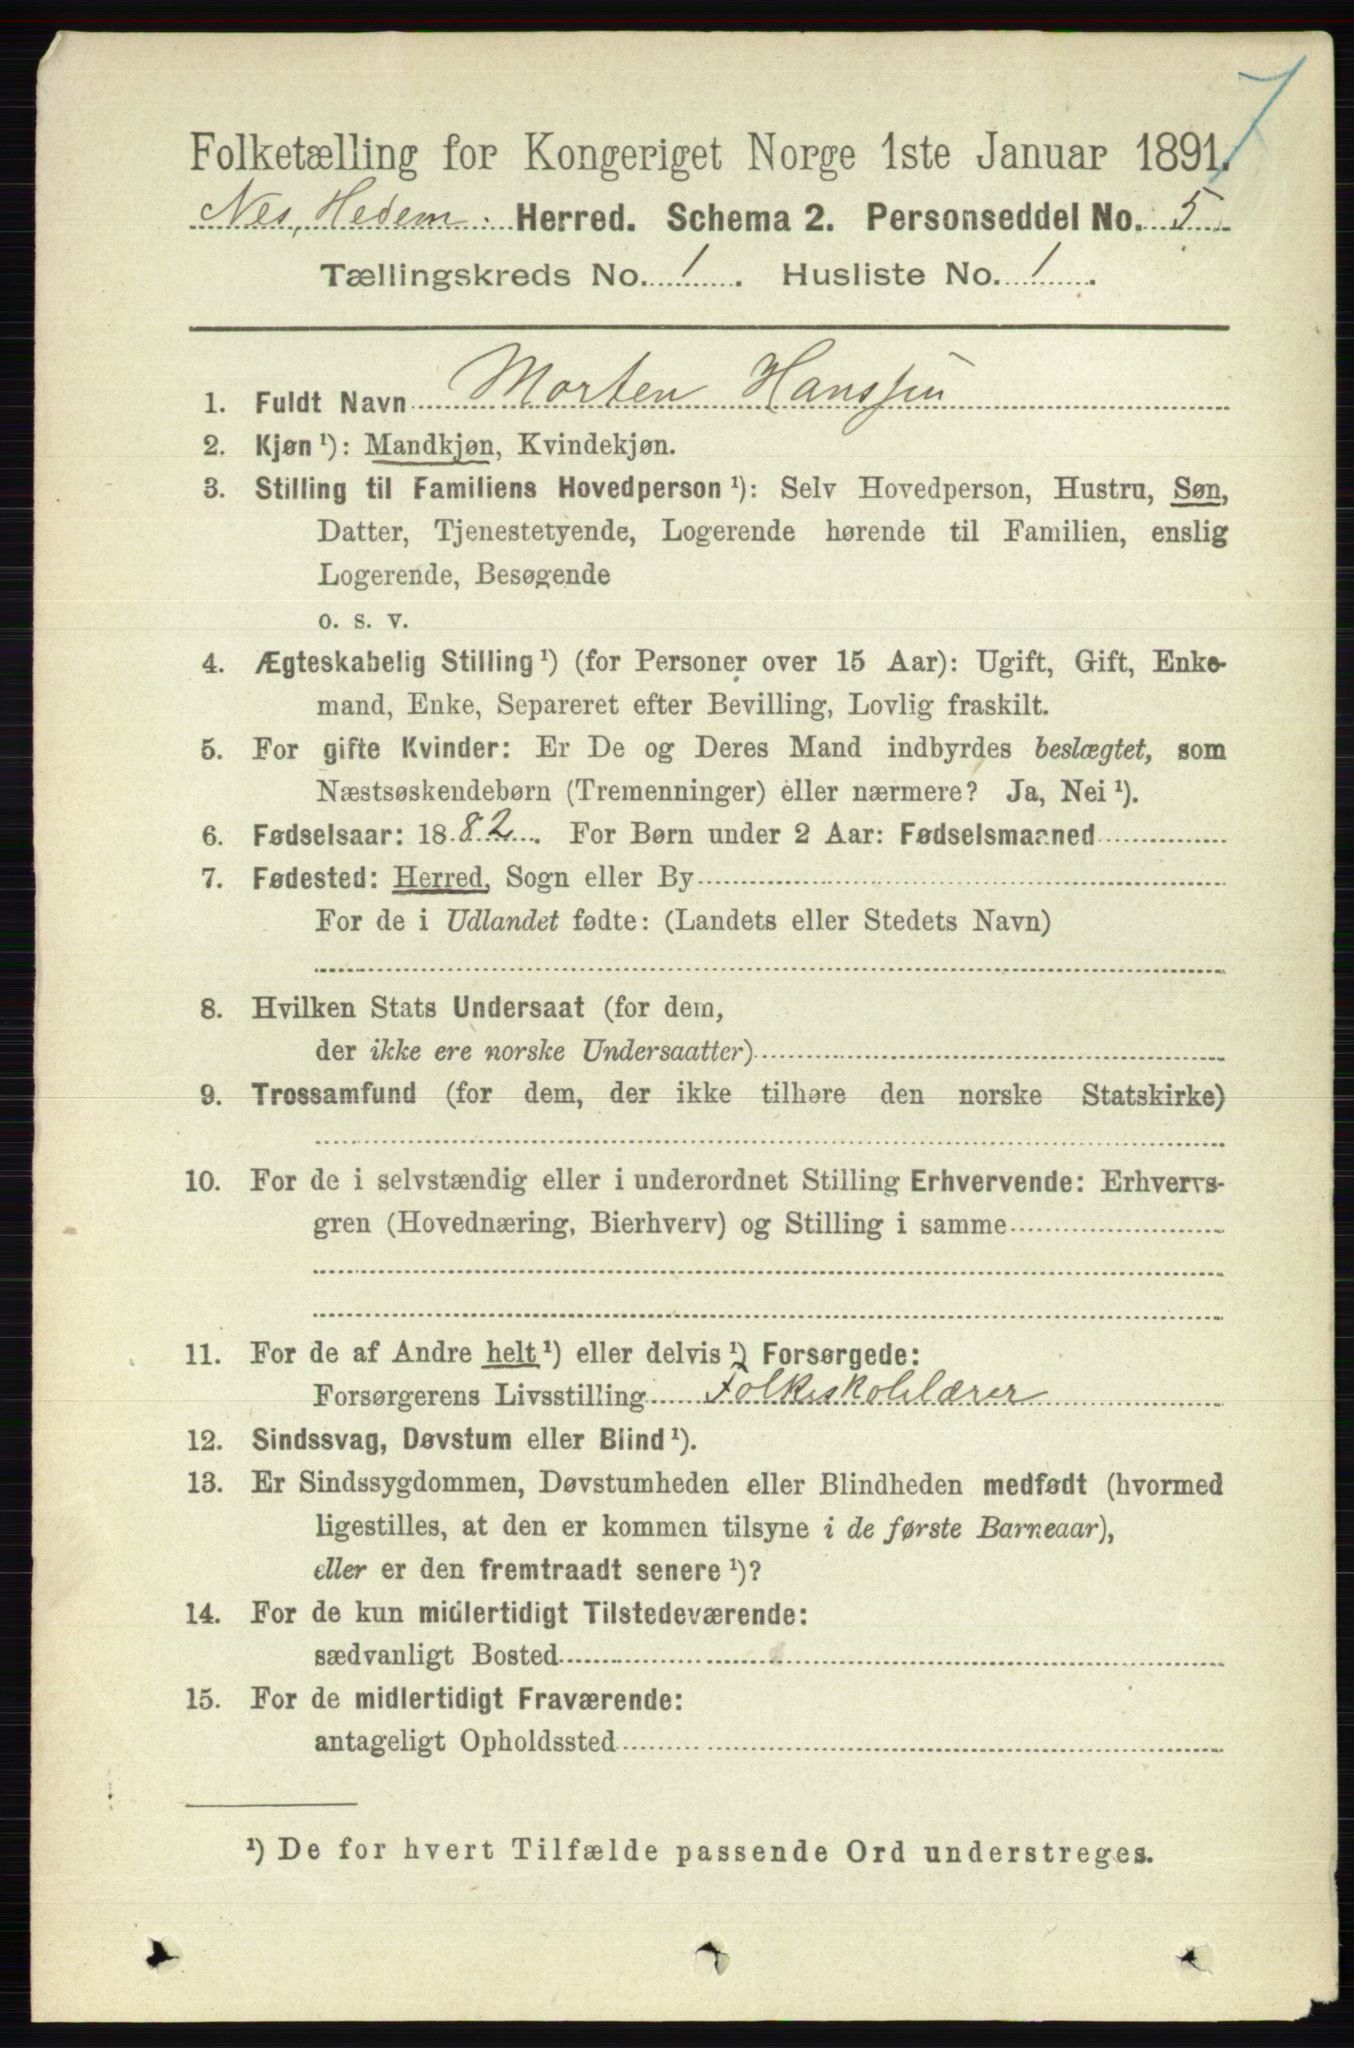 7
Folketælling for Kongeriget Norge 1ste Januar 1891.
Nes, Hedem. Herred. Schema 2. Personseddel No. 5
Tællingskreds No. 1. Husliste No. 1.
1. Fuldt Navn Morten Hanssen
2. Kjøn ¹): Mandkjøn, Kvindekjøn.
3. Stilling til Familiens Hovedperson ¹): Selv Hovedperson, Hustru, Søn,
Datter, Tjenestetyende, Logerende hørende til Familien, enslig
Logerende, Besøgende
o. s. v.
4. Ægteskabelig Stilling ¹) (for Personer over 15 Aar): Ugift, Gift, Enke-
mand, Enke, Separeret efter Bevilling, Lovlig fraskilt.
5. For gifte Kvinder: Er De og Deres Mand indbyrdes beslægtet, som
Næstsøskendebørn (Tremenninger) eller nærmere? Ja, Nei ¹).
6. Fødselsaar: 1882. For Børn under 2 Aar: Fødselsmaaned
7. Fødested: Herred, Sogn eller By
For de i Udlandet fødte: (Landets eller Stedets Navn)
8. Hvilken Stats Undersaat (for dem,
der ikke ere norske Undersaatter)
9. Trossamfund (for dem, der ikke tilhøre den norske Statskirke)
10. For de i selvstændig eller i underordnet Stilling Erhvervende: Erhvervs-
gren (Hovednæring, Bierhverv) og Stilling i samme
11. For de af Andre helt ¹) eller delvis ¹) Forsørgede:
Forsørgerens Livsstilling Folkeskolelærer
12. Sindssvag, Døvstum eller Blind ¹).
13. Er Sindssygdommen, Døvstumheden eller Blindheden medfødt (hvormed
ligestilles, at den er kommen tilsyne i de første Barneaar),
eller er den fremtraadt senere ¹)?
14. For de kun midlertidigt Tilstedeværende:
sædvanligt Bosted
15. For de midlertidigt Fraværende:
antageligt Opholdssted
¹) De for hvert Tilfælde passende Ord understreges.